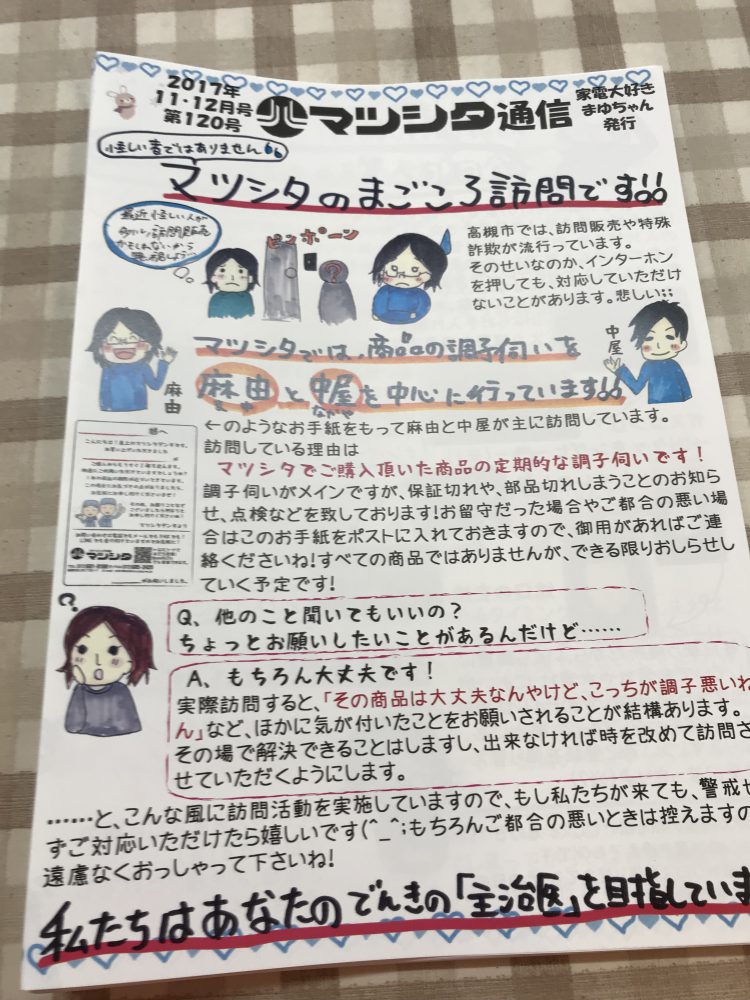 2017年
11・12月号
第120号
マツシタ通信
家電大好き
まゆちゃん
発行
怪しい者ではありません
マツシタのまごころ訪問です!!
最近怪しい人が
ピンポーン
?
高槻市では、訪問販売や特殊
詐欺が流行っています。
そのせいなのか、インターホン
を押しても、対応していただけ
ないことがあります。悲しい;;
麻由
中屋
マツシタでは、商品の調子伺いを
麻由と中屋を中心に行っています!!
まゆ
なかや
←のようなお手紙をもって麻由と中屋が主に訪問しています。
訪問している理由は
マツシタでご購入頂いた商品の定期的な調子伺いです!
調子伺いがメインですが、保証切れや、部品切れしまうことのお知ら
せ、点検などを致しております!お留守だった場合やご都合の悪い場
合はこのお手紙をポストに入れておきますので、御用があればご連
絡くださいね!すべての商品ではありませんが、できる限りおしらせし
ていく予定です!
様へ
マツシタ
?
Q、他のこと聞いてもいいの?
ちょっとお願いしたいことがあるんだけど……
A、もちろん大丈夫です!
実際訪問すると、「その商品は大丈夫なんやけど、こっちが調子悪いね
ん」など、ほかに気が付いたことをお願いされることが結構あります。
その場で解決できることはしますし、出来なければ時を改めて訪問さ
せていただくようにします。
……と、こんな風に訪問活動を実施していますので、もし私たちが来ても、警戒せ
ずご対応いただけたら嬉しいです(^_^;もちろんご都合の悪いときは控えますの
遠慮なくおっしゃって下さいね!
私たちはあなたのでんきの「主治医」を目指していま